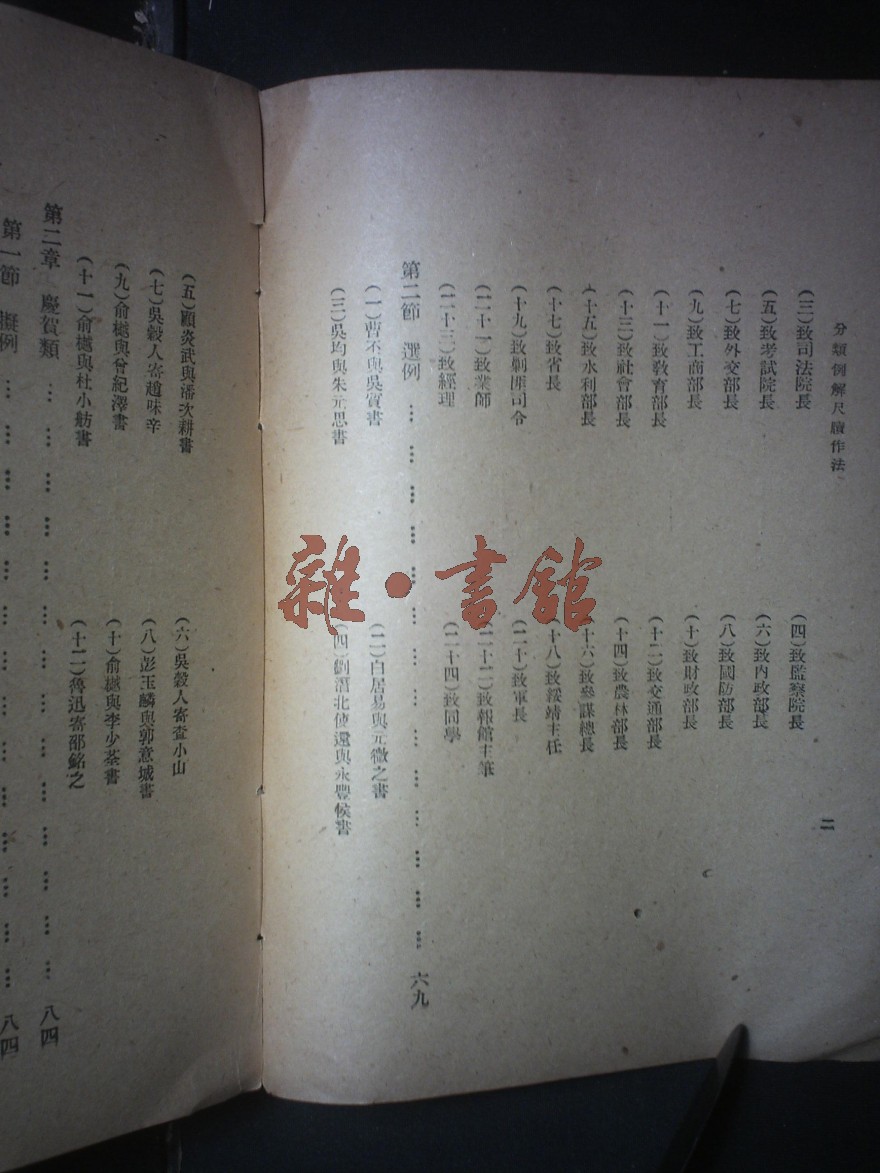 分類例解尺牘作法
二
(三)致司法院長
(四)致監察院長
(五)致考試院長
(六)致內政部長
(七)致外交部長
(八)致國防部長
(九)致工商部長
(十)致財政部長
(十一)致敎育部長
(十二)致交通部長
(十三)致社會部長
(十四)致農林部長
(十五)致水利部長
(十六)致參謀總長
(十七)致省長
(十八)致綏靖主任
(十九)致剿匪司令
(二十)致軍長
(二十一)致業師
(二十二)致報館主筆
(二十三)致經理
(二十四)致同學
第二節 選例 … … … … … … … … … … … … … … 六九
(一)曹丕與吳質書
(二)白居易與元微之書
(三)吳均與朱元思書
(四)劉潛北使還與永豐候書
(五)顧炎武與潘次耕書
(六)吳榖人寄查小山
(七)吳榖人寄趙味辛
(八)彭玉麟與郭意城書
(九)俞樾與曾紀澤書
(十)俞樾與李少荃書
(十一)俞樾與杜小舫書
(十二)魯迅寄邵銘之
第二章 慶賀類 … … … … … … … … … … … … … … 八四
第一節 擬例 … … … … … … … … … … … … … … 八四
雜·書館